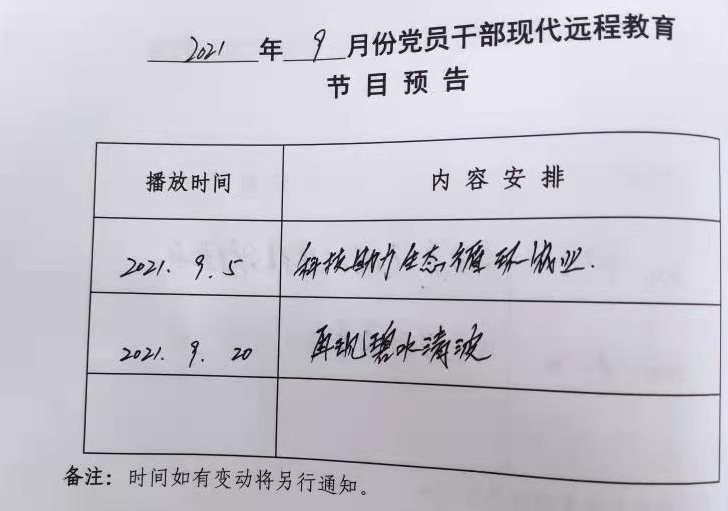 2021 年 9 月份党员干部现代远程教育
节目预告
播放时间 内容安排
2021. 9. 5 科技助力生态循环农业.
2021. 9. 20 再现碧水清波
备注：时间如有变动将另行通知。